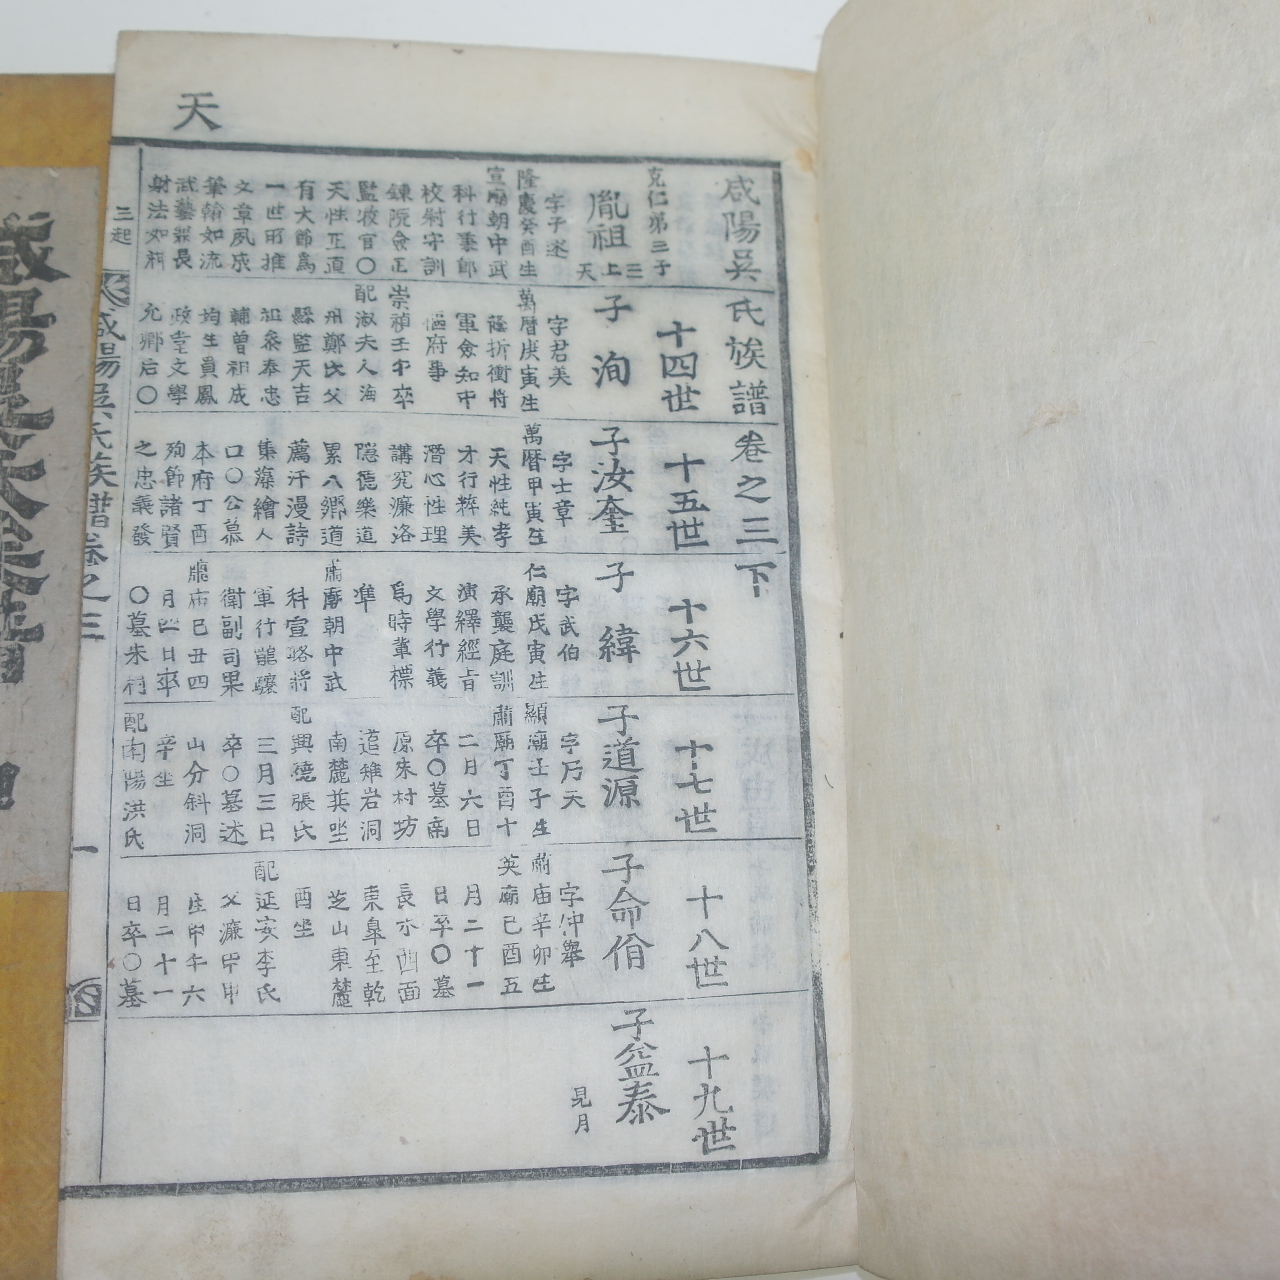 天
咸陽吳氏族譜卷之三下
克仁第三子
胤祖
三上天
字子述
隆慶癸酉生
宣廟朝中武
科行秉郎
校尉守訓
鍊院僉正
監役官〇
天性正直
有大節為
一世所推
文章夙成
筆翰如流
武藝兼長
射法如神
十四世
子洵
字君美
萬曆庚寅生
蔭折衝將
軍僉知中
樞府事
崇禎壬午卒
配淑夫人海
州鄭氏父
縣監天吉
祖參奉忠
輔曾祖成
均生員鳳
政堂文學
允卿后〇
十五世
子汝奎
字士章
萬曆甲寅生
天性純孝
才行粹美
潛心性理
講究濂洛
隱德樂道
累入鄉道
薦汗漫詩
集藻繪人
口〇公墓
本府丁酉
殉節諸賢
之忠義發
十六世
子緯
字武伯
仁廟戊寅生
承襲庭訓
演繹經旨
文學行義
爲時輩標
準
肅廟朝中武
科宣略將
軍行龍驤
衛副司果
肅廟己丑四
月四日卒
〇墓朱村
十七世
子道源
字乃天
顯廟壬子生
肅廟丁酉十
二月六日
卒〇墓南
原朱村坊
造雉岩洞
南麓巽坐
配興德張氏
三月三日
卒〇墓述
山分斜洞
辛坐
配南陽洪氏
十八世
子命佾
字仲舉
肅庙辛卯生
英廟己酉五
月二十一
日卒〇墓
長水西面
東皐至乾
芝山東麓
酉坐
配延安李氏
父濂甲申
生甲午六
月二十一
日卒〇墓
十九世
子益泰
見月
三起
咸陽吳氏族譜卷之三
一